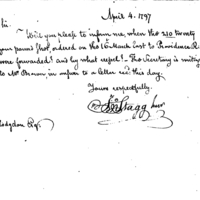 April 4. 1797
Sir.
Will you please to inform me, when the 210 twenty
four pound shot, ordered on the 16 March last to Providence R.I.
were forwarded? and by what vessel? – The Secretary is writing
to Mr Brown in answer to a letter recd this day.
Yours respectfully.
Jno Stagg junr
Hodgdon Esqr.